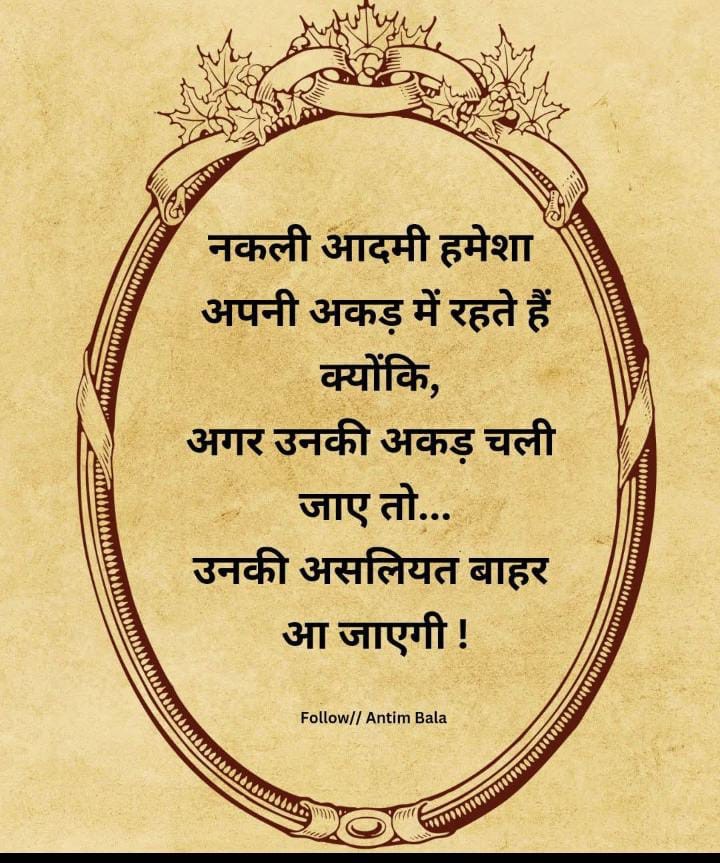 नकली आदमी हमेशा
अपनी अकड़ में रहते हैं
क्योंकि,
अगर उनकी अकड़ चली
जाए तो...
उनकी असलियत बाहर
आ जाएगी !
Follow// Antim Bala